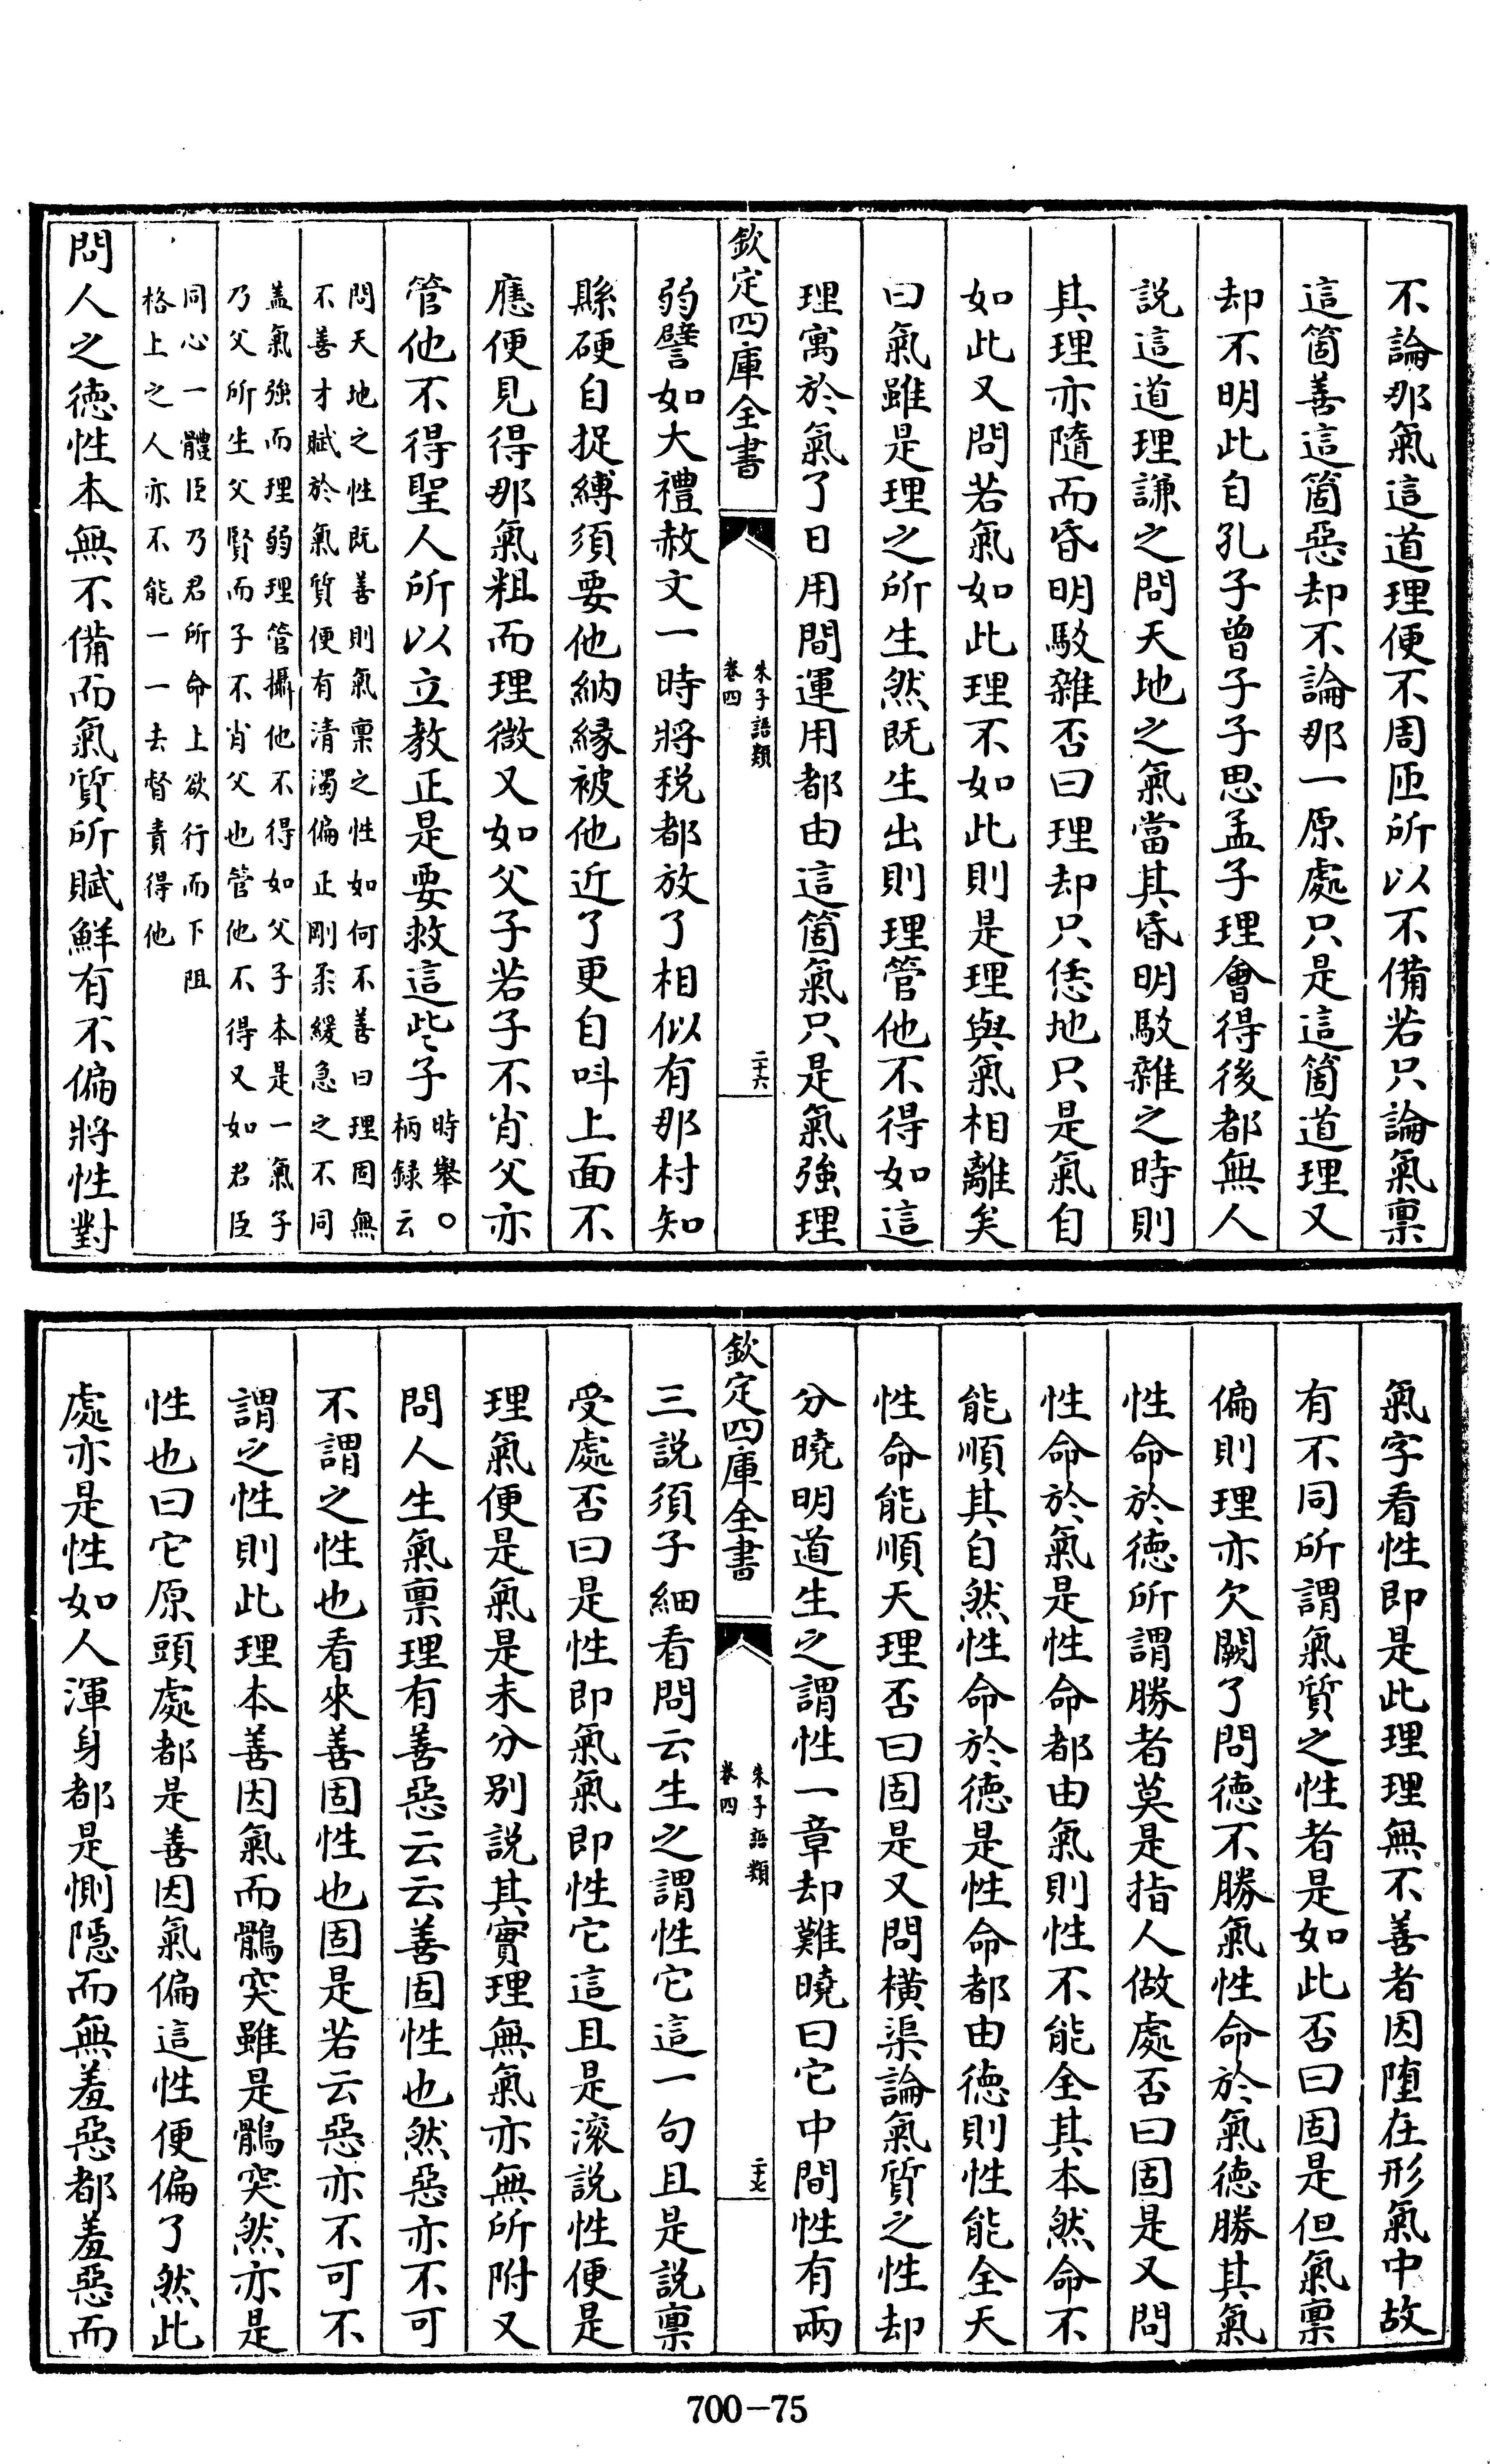 不論那氣這道理便不周匝所以不備若只論氣禀
這箇善這箇惡却不論那一原處只是這箇道理又
却不明此自孔子曾子子思孟子理會得後都無人
説這道理謙之問天地之氣當其昏明駁雜之時則
其理亦隨而昏明駁雜否曰理却只恁地只是氣自
如此又問若氣如此理不如此則是理與氣相離矣
曰氣雖是理之所生然既生出則理管他不得如這
理寓於氣了日用間運用都由這箇氣只是氣強理
欽定四庫全書
朱子語類
卷四
二十六
弱譬如大禮赦文一時將税都放了相似有那村知
縣硬自捉縛須要他納緣被他近了更自呌上面不
應便見得那氣粗而理微又如父子若子不肖父亦
管他不得聖人所以立教正是要救這些子時舉○
柄録云
問天地之性既善則氣禀之性如何不善曰理固無
不善才賦於氣質便有清濁偏正剛柔緩急之不同
盖氣強而理弱理管攝他不得如父子本是一氣子
乃父所生父賢而子不肖父也管他不得又如君臣
同心一體臣乃君所命上欲行而下阻
格上之人亦不能一一去督責得他
問人之德性本無不備而氣質所賦鮮有不偏將性對
氣字看性即是此理理無不善者因墮在形氣中故
有不同所謂氣質之性者是如此否曰固是但氣禀
偏則理亦欠闕了問德不勝氣性命於氣德勝其氣
性命於德所謂勝者莫是指人做處否曰固是又問
性命於氣是性命都由氣則性不能全其本然命不
能順其自然性命於德是性命都由德則性能全天
性命能順天理否曰固是又問横渠論氣質之性却
分曉明道生之謂性一章却難曉曰它中間性有兩
欽定四庫全書
朱子語類
卷四
二十七
三説須子細看問云生之謂性它這一句且是説禀
受處否曰是性即氣氣即性它這且是滚説性便是
理氣便是氣是未分别説其實理無氣亦無所附又
問人生氣禀理有善惡云云善固性也然惡亦不可
不謂之性也看來善固性也固是若云惡亦不可不
謂之性則此理本善因氣而鶻突雖是鶻突然亦是
性也曰它原頭處都是善因氣偏這性便偏了然此
處亦是性如人渾身都是惻隱而無羞惡都羞惡而
700-75